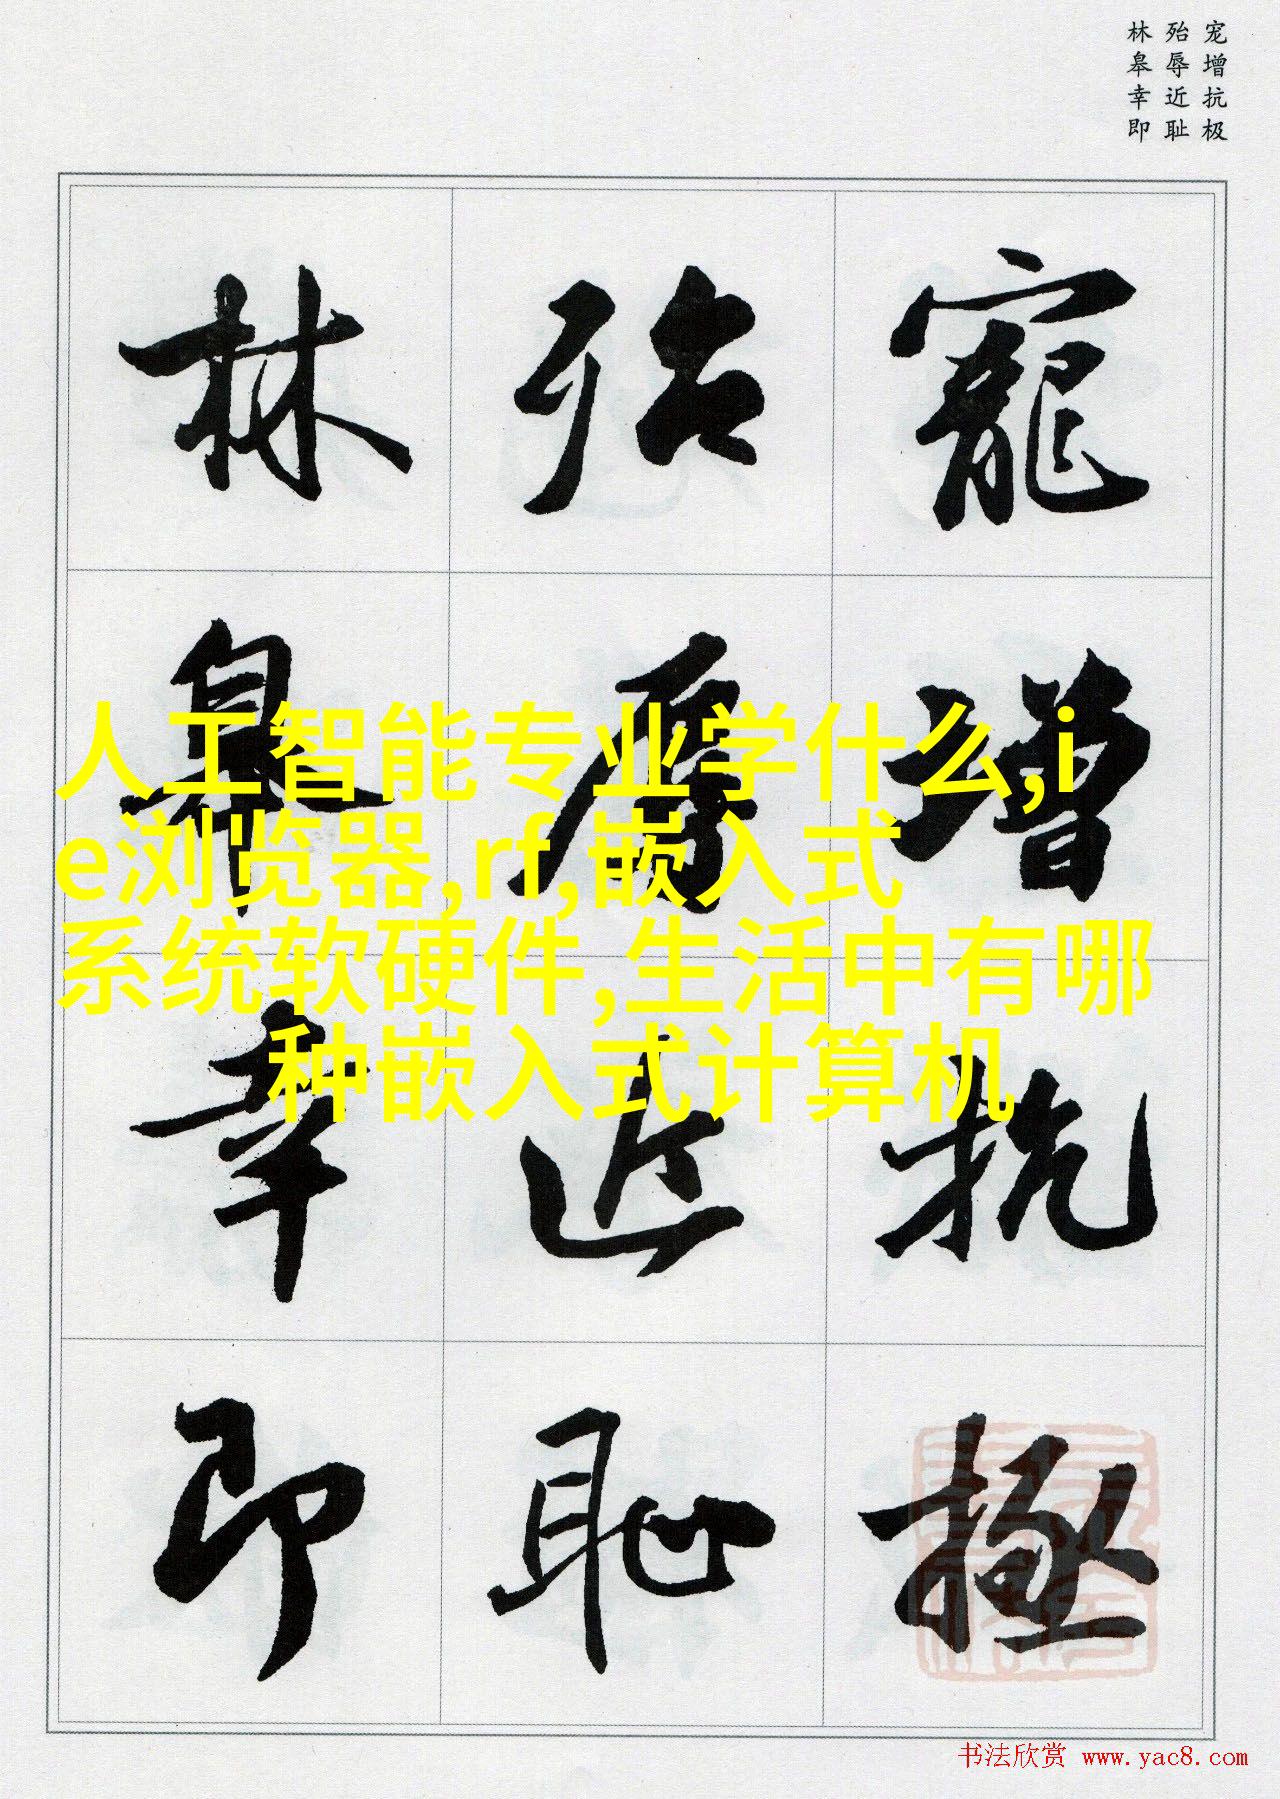 宠增抗极
殆辱近耻
林皋幸即
寵增抗極
殆辱近耻
林皋幸即
人工智能专业学什么,i
e浏览器,rf,嵌入式
系统软硬件,生活中有哪
种嵌入式计算机
书法欣赏 www.yac8.com